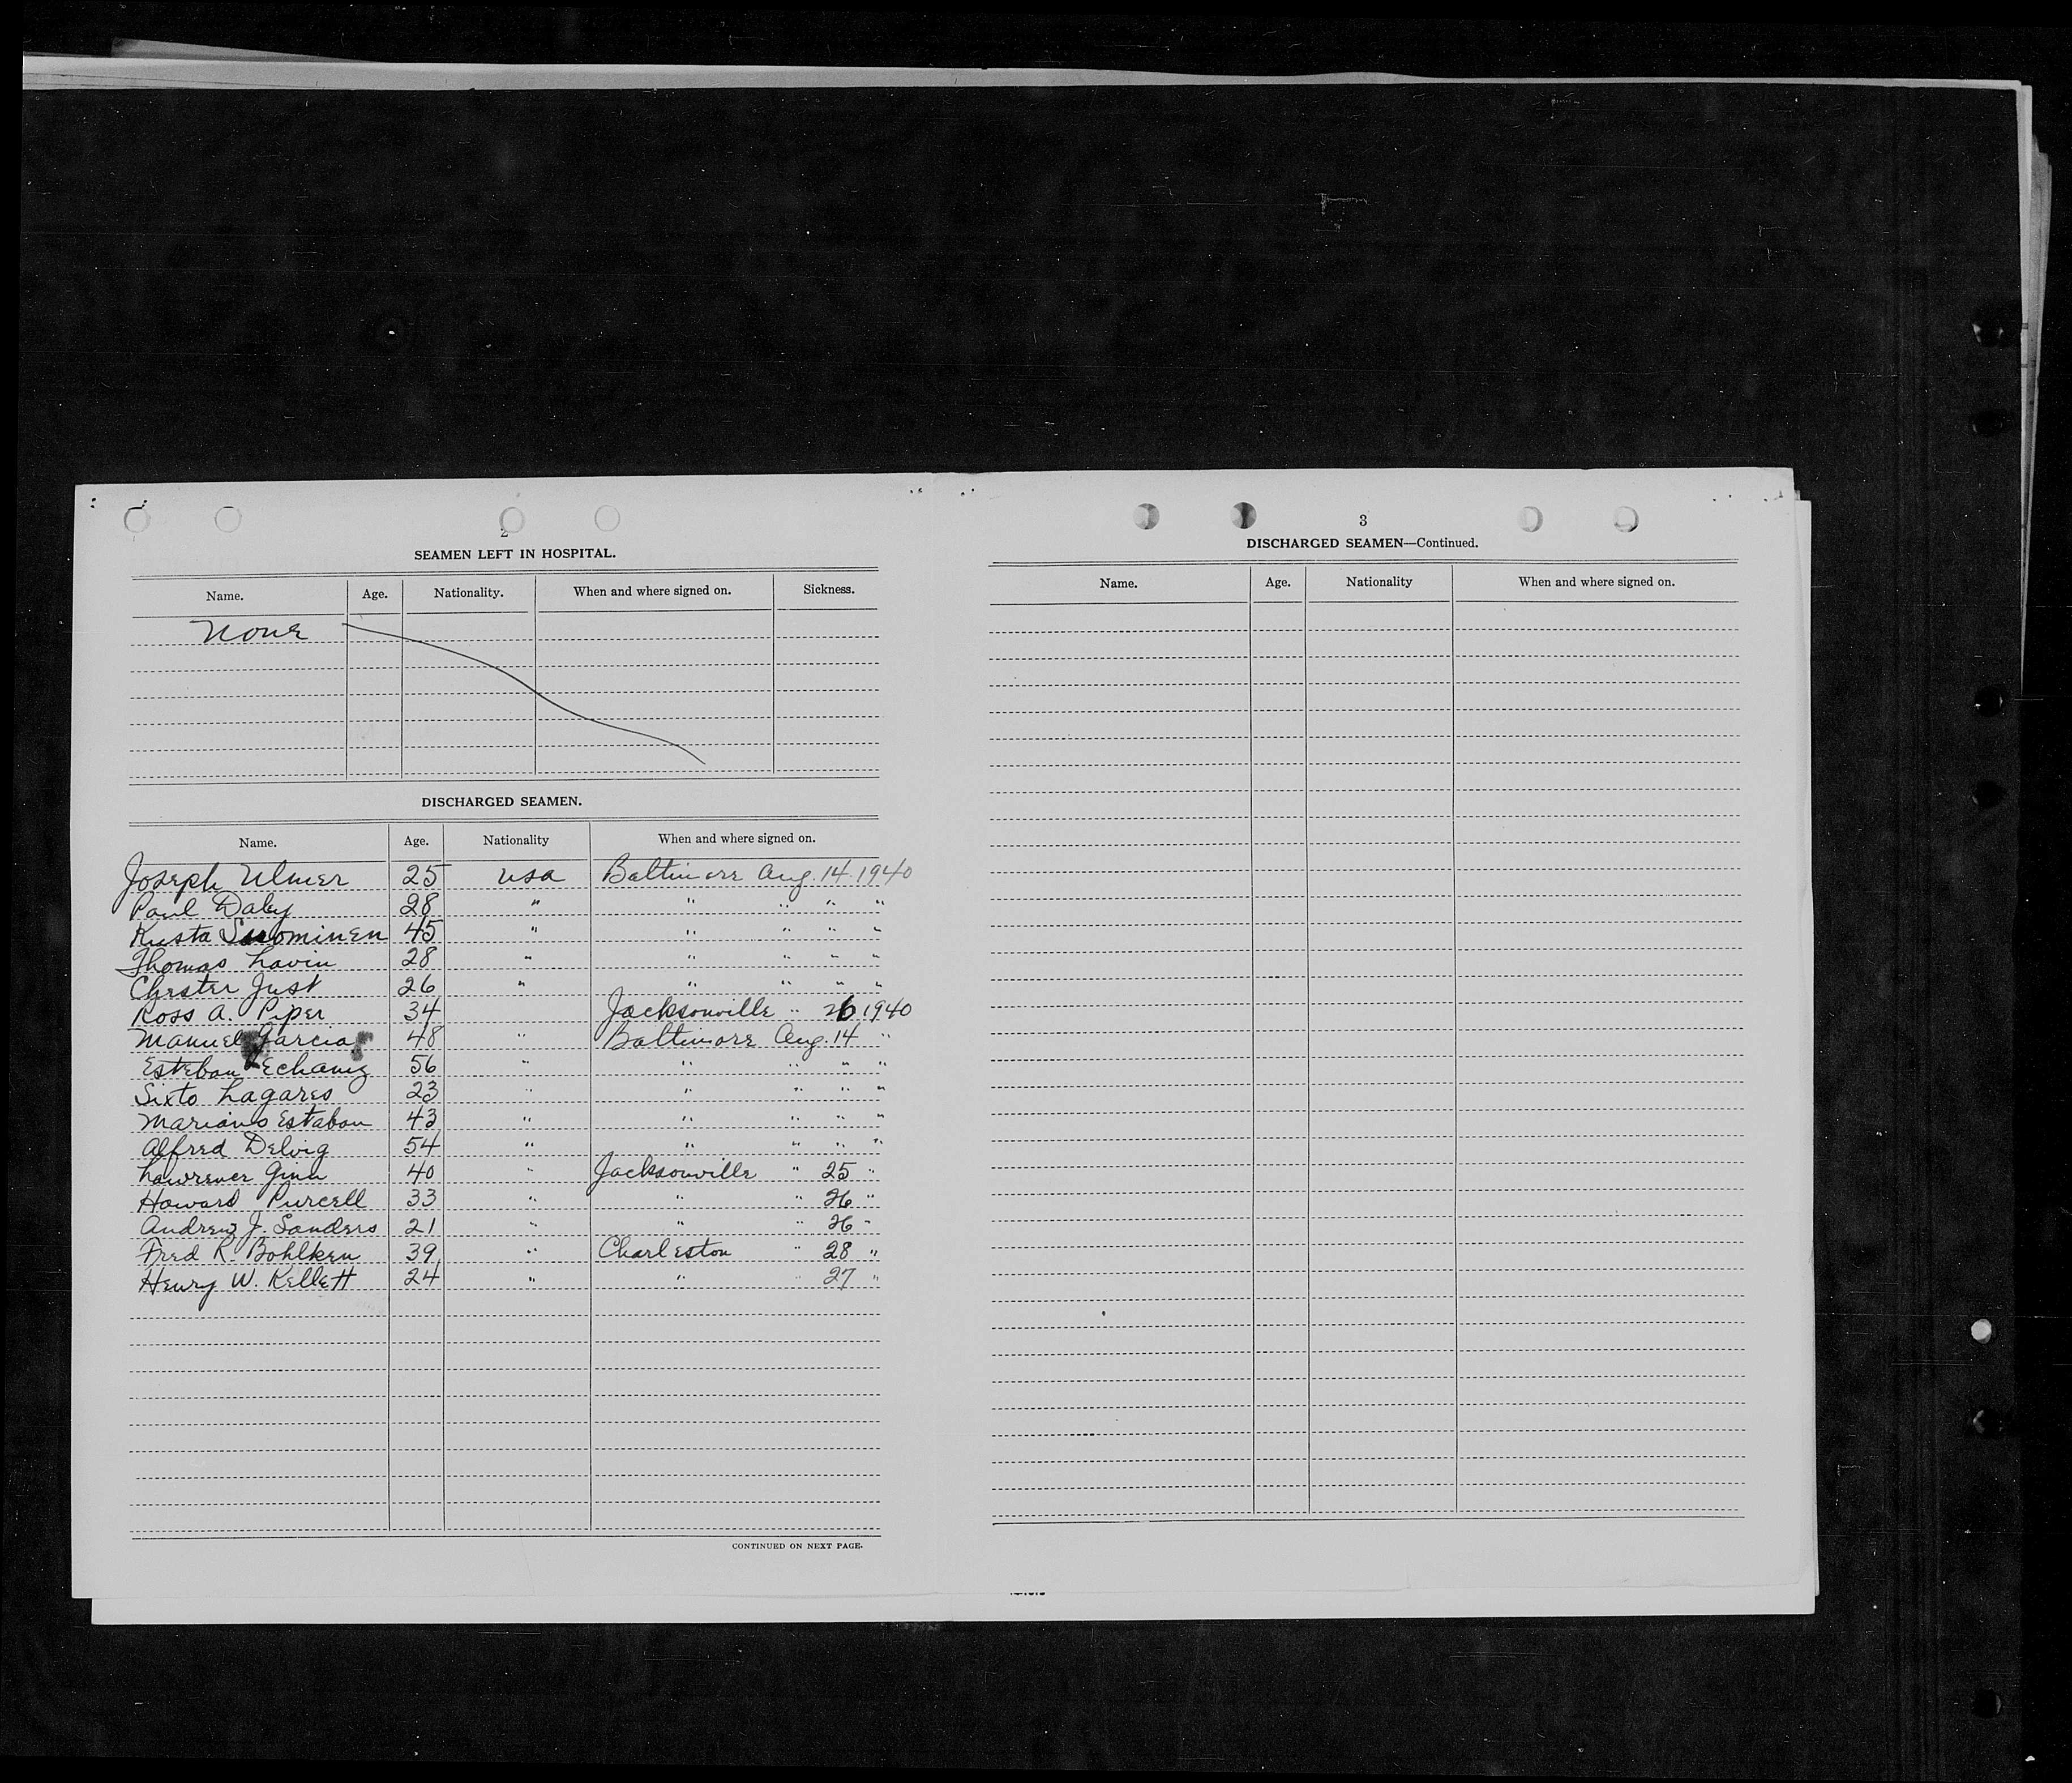 2
SEAMEN LEFT IN HOSPITAL.
Name. Age. Nationality. When and where signed on. Sickness.
None
DISCHARGED SEAMEN.
Name. Age. Nationality When and where signed on.
Joseph Ulmer 25 USA Baltimore Aug. 14. 1940
Paul Daly 28 " " " " "
Kusta Suominen 45 " " " " "
Thomas Lavin 28 " " " " "
Chester Just 26 " " " " "
Ross A. Piper 34 Jacksonville " 26 1940
Manuel Garcia 48 " Baltimore Aug. 14 "
Esteban Echaniz 56 " " " " "
Sixto Lagares 23 " " " " "
Mariano Estaban 43 " " " " "
Alfred Delvig 54 " " " " "
Lawrence Ginn 40 " Jacksonville " 25 "
Howard Purcell 33 " " " 26 "
Andrew J. Sanders 21 " " " 26 "
Fred R. Bohlken 39 " Charleston " 28 "
Henry W. Kellett 24 " " " 27 "
CONTINUED ON NEXT PAGE.
3
DISCHARGED SEAMEN—Continued.
Name. Age. Nationality When and where signed on.